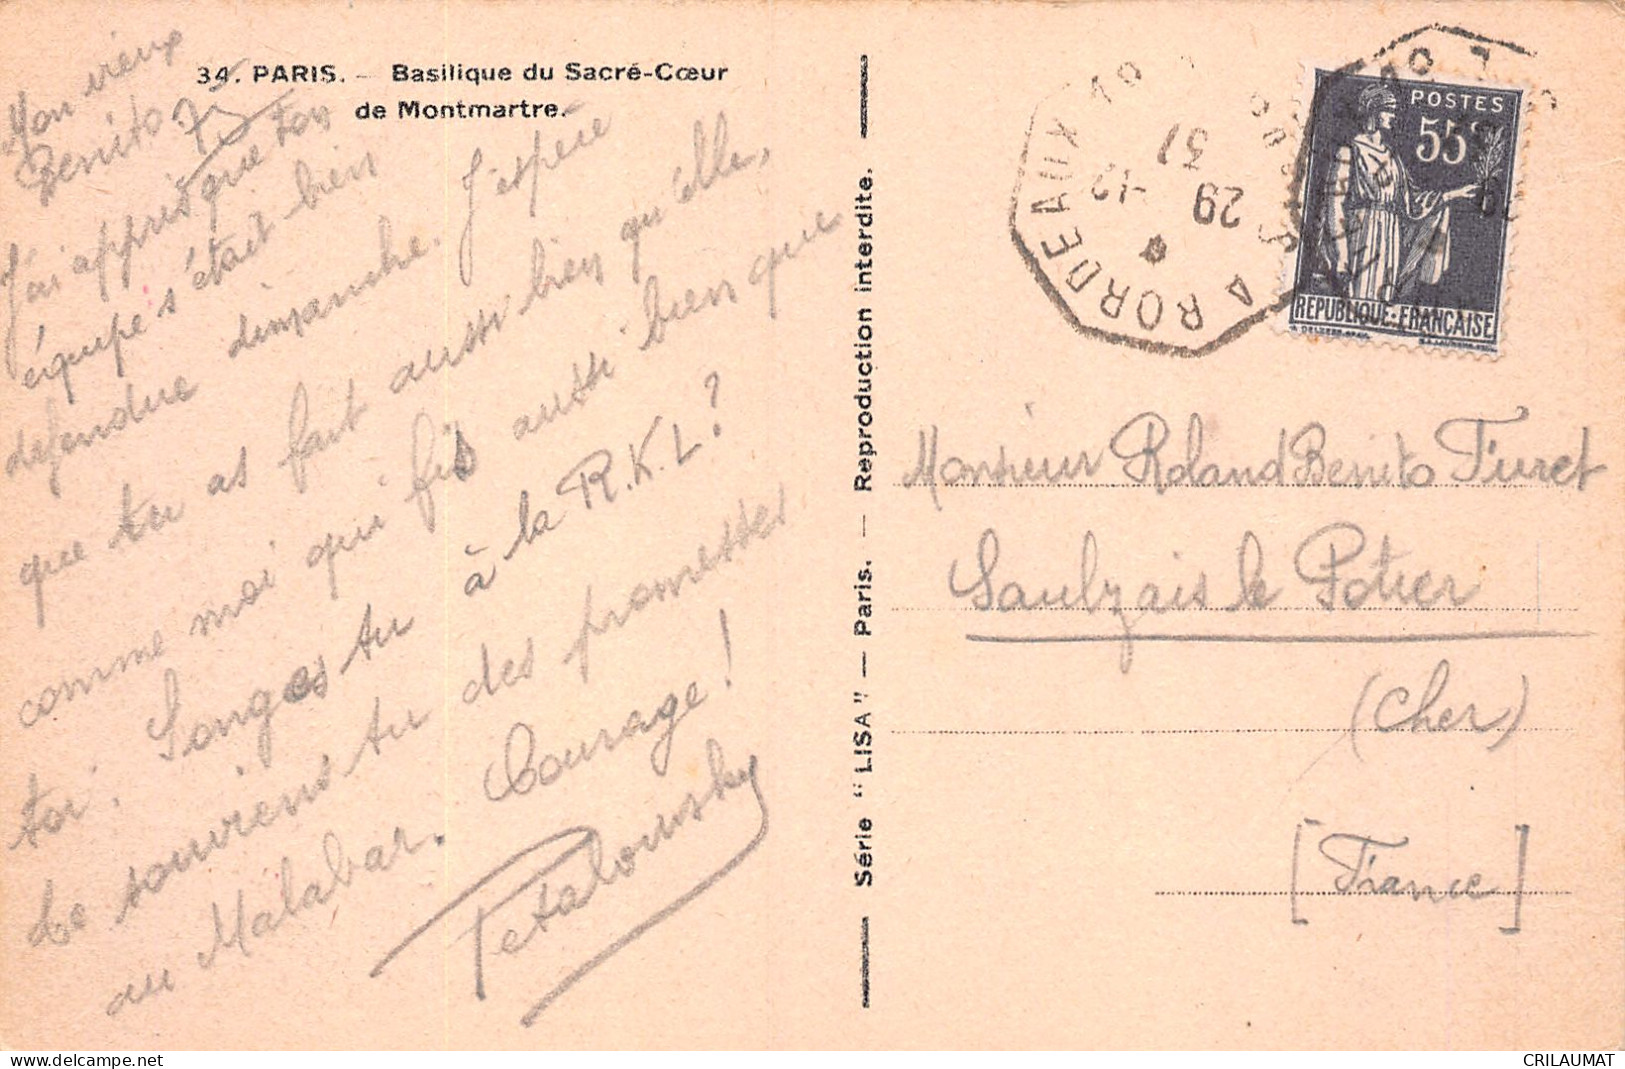 34. PARIS. — Basilique du Sacré-Cœur
de Montmartre.
Mon vieux
Benito
J'ai appris que ton
équipe s'était bien
défendue dimanche. J'espère
que tu as fait aussi bien qu'elle,
comme moi qui fis aussi bien que
toi. Songes tu à la R.K.L?
Te souviens tu des promesses
au Malabar. Courage!
Petalowsky
Série "LISA" — Paris. — Reproduction interdite.
BORDEAUX
29 -12
37
POSTES
55c
REPUBLIQUE·FRANÇAISE
Monsieur Roland Benito Furet
Saulzais le Potier
(Cher)
[France]
delcampe.net
CRILAUMAT